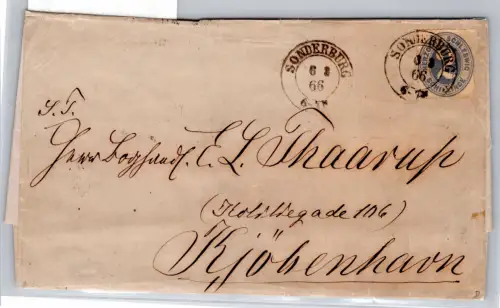 SONDERBURG
6 2
66
SONDERBURG
6 2
66
SCHLESWIG
S. T.
Herr Boghandl. E. L. Thaarup
(Kolsliegade 106)
Kjöbenhavn